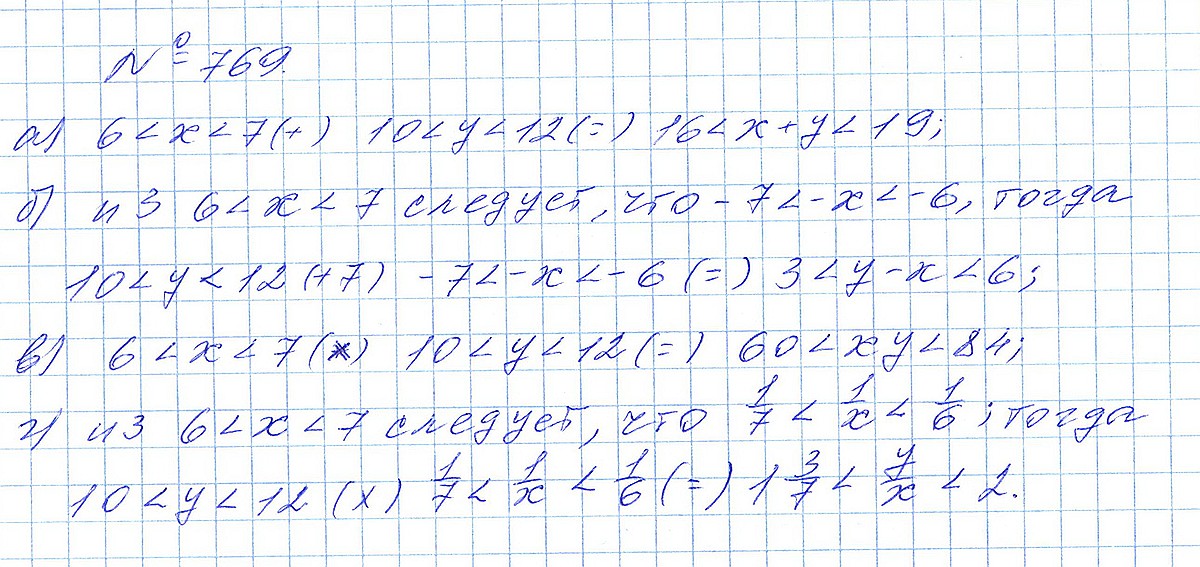 № 769.
а) 6 < x < 7 (+) 10 < y < 12 (=) 16 < x + y < 19;
б) из 6 < x < 7 следует, что - 7 < -x < -6, тогда
10 < y < 12 (+7) -7 < -x < -6 (=) 3 < y - x < 6;
в) 6 < x < 7 (x) 10 < y < 12 (=) 60 < xy < 84;
г) из 6 < x < 7 следует, что 1/7 < 1/x < 1/6; тогда
10 < y < 12 (x) 1/7 < 1/x < 1/6 (=) 1 3/7 < y/x < 2.